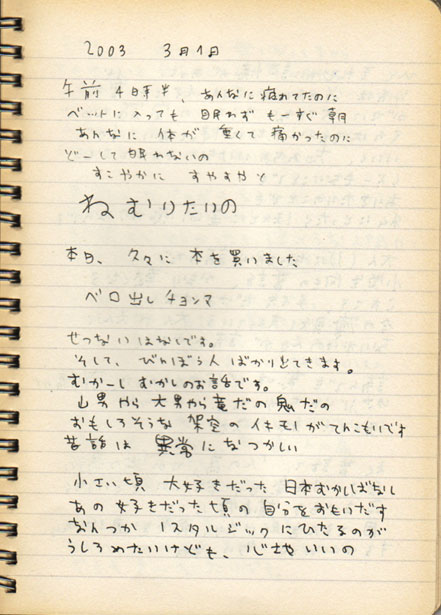 2003 3月1日
午前4時半、あんなに疲れてたのに
ベットに入っても 眠れず もーすぐ朝
あんなに 体が 重くて 痛かったのに
どーして眠れないの
すこやかに すやすやと
ねむりたいの
本日、久々に 本を買いました
ベロ出しチョンマ
せつないはなしです。
そして、びんぼう人ばかりでてきます。
むかーしむかしのお話です。
山男やら大男やら竜だの鬼だの
おもしろそうな架空のイキモノがてんこもりです
昔話は 異常になつかしい
小さい頃 大好きだった 日本むかしばなし
あの 好きだった頃の 自分をおもいだす
なんつか ノスタルジックにひたるのが
うしろめたいけども、心地いいの